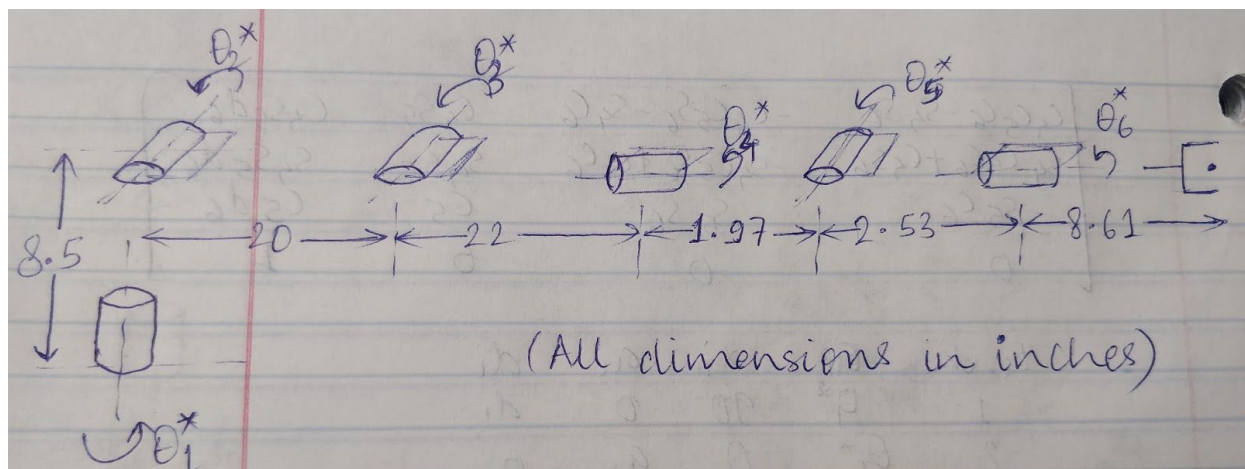 θ2* θ3* θ4* θ5* θ6*
8.5 20 22 1.97 2.53 8.61
(All dimensions in inches)
θ1*